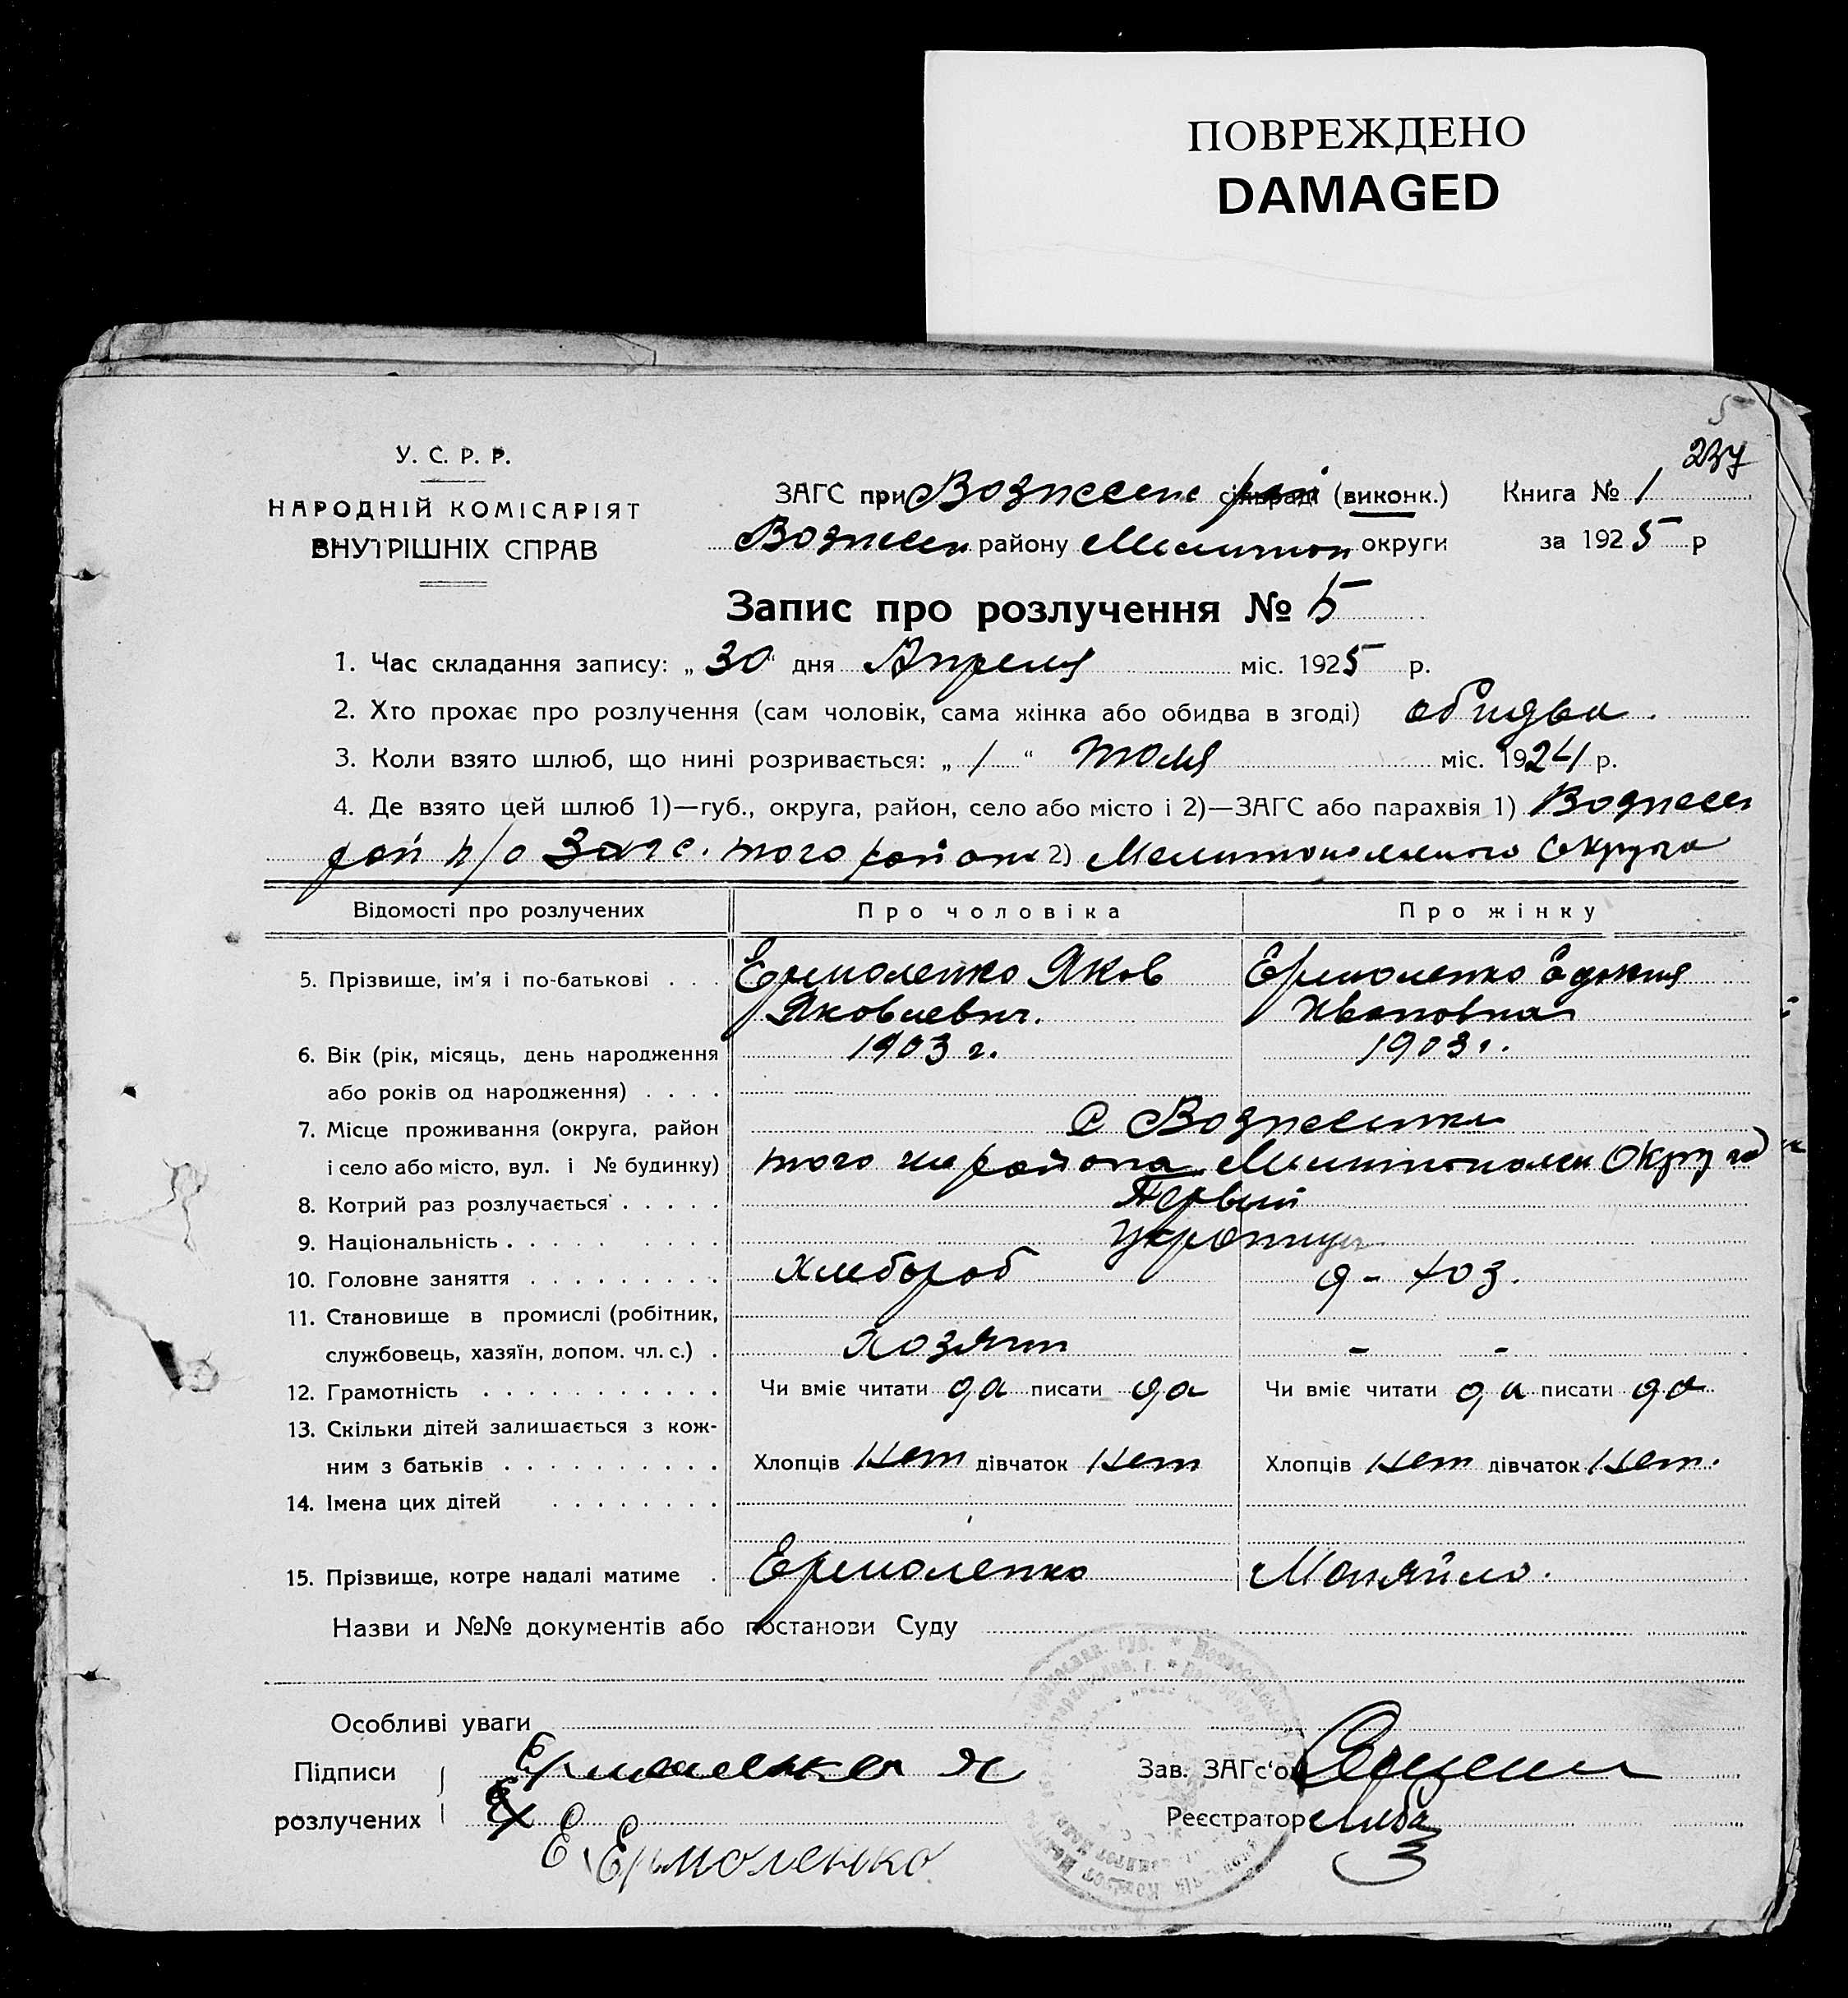 ПОВРЕЖДЕНО
DAMAGED
5
237
У. С. Р. Р.
НАРОДНІЙ КОМІСАРІЯТ
ВНУТРІШНІХ СПРАВ
ЗАГС при Вознесен рай сільраді (виконк.) Книга № 1
Вознесен району Мелитоп округи за 1925 р
Запис про розлучення № 5
1. Час складання запису: „30“ дня Апреля міс. 1925 р.
2. Хто прохає про розлучення (сам чоловік, сама жінка або обидва в згоді) обидва.
3. Коли взято шлюб, що нині розривається: „1“ июля міс. 1924 р.
4. Де взято цей шлюб 1)—губ., округа, район, село або місто і 2)—ЗАГС або парахвія 1) Вознесен
рай п/о Загс. того района 2) Мелитопольского Округа
Відомості про розлучених Про чоловіка Про жінку
5. Прізвище, ім'я і по-батькові . . . Ермоленко Яков Ермоленко Едокия
Яковлевич. Ивановна
6. Вік (рік, місяць, день народження 1903 г. 1903 г.
або років од народження) . . . .
7. Місце проживання (округа, район с Вознесенка
і село або місто, вул. і № будинку) того же района Мелитополск Округа
8. Котрий раз розлучається . . . . . Первый
9. Національність . . . . . . . . . Украинцы
10. Головне заняття . . . . . . . . . Хлебороб д-хоз.
11. Становище в промислі (робітник,
службовець, хазяїн, допом. чл. с.) . Хозяин - -
12. Грамотність . . . . . . . . . . . Чи вміє читати да писати да Чи вміє читати да писати да
13. Скільки дітей залишається з кож-
ним з батьків . . . . . . . . . . Хлопців Нет дівчаток Нет Хлопців Нет дівчаток Нет.
14. Імена цих дітей . . . . . . . .
15. Прізвище, котре надалі матиме . Ермоленко Маняйло.
Назви и №№ документів або постанови Суду
Особливі уваги
Підписи Ермоленко Я Зав. ЗАГс'ом
розлучених Реєстратор
Е Ермоленко